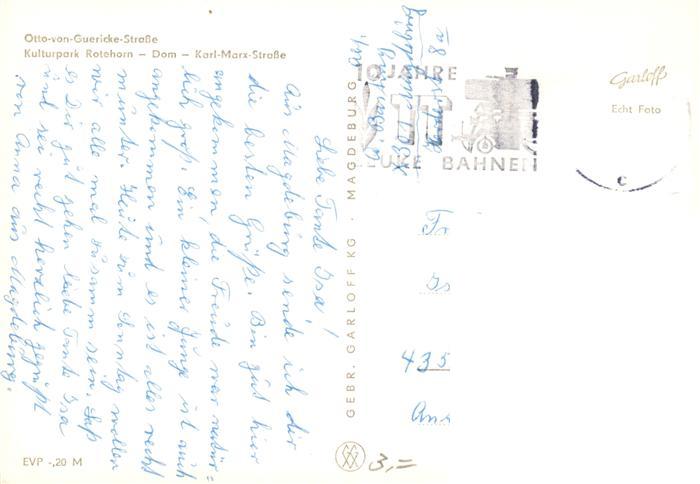 Otto-von-Guericke-Straße
Kulturpark Rotehorn – Dom – Karl-Marx-Straße
Liebe Tante Isa!
Aus Magdeburg sende ich dir
die besten Grüße. Bin gut hier
angekommen, die Freude war natür=
lich groß. Ein kleiner Junge ist auch
angekommen und es ist alles recht
munter. Heute zum Sonntag wollen
wir alle mal zusamm sein. Laß
es Dir gut gehen liebe Tante Isa
und sei recht herzlich gegrüßt
von Anna aus Magdeburg.
EVP -,20 M
GEBR. GARLOFF KG · MAGDEBURG
10 JAHRE
BAHNEN
Garloff
Echt Foto
c
Fr
Is
435
Ans
3,=